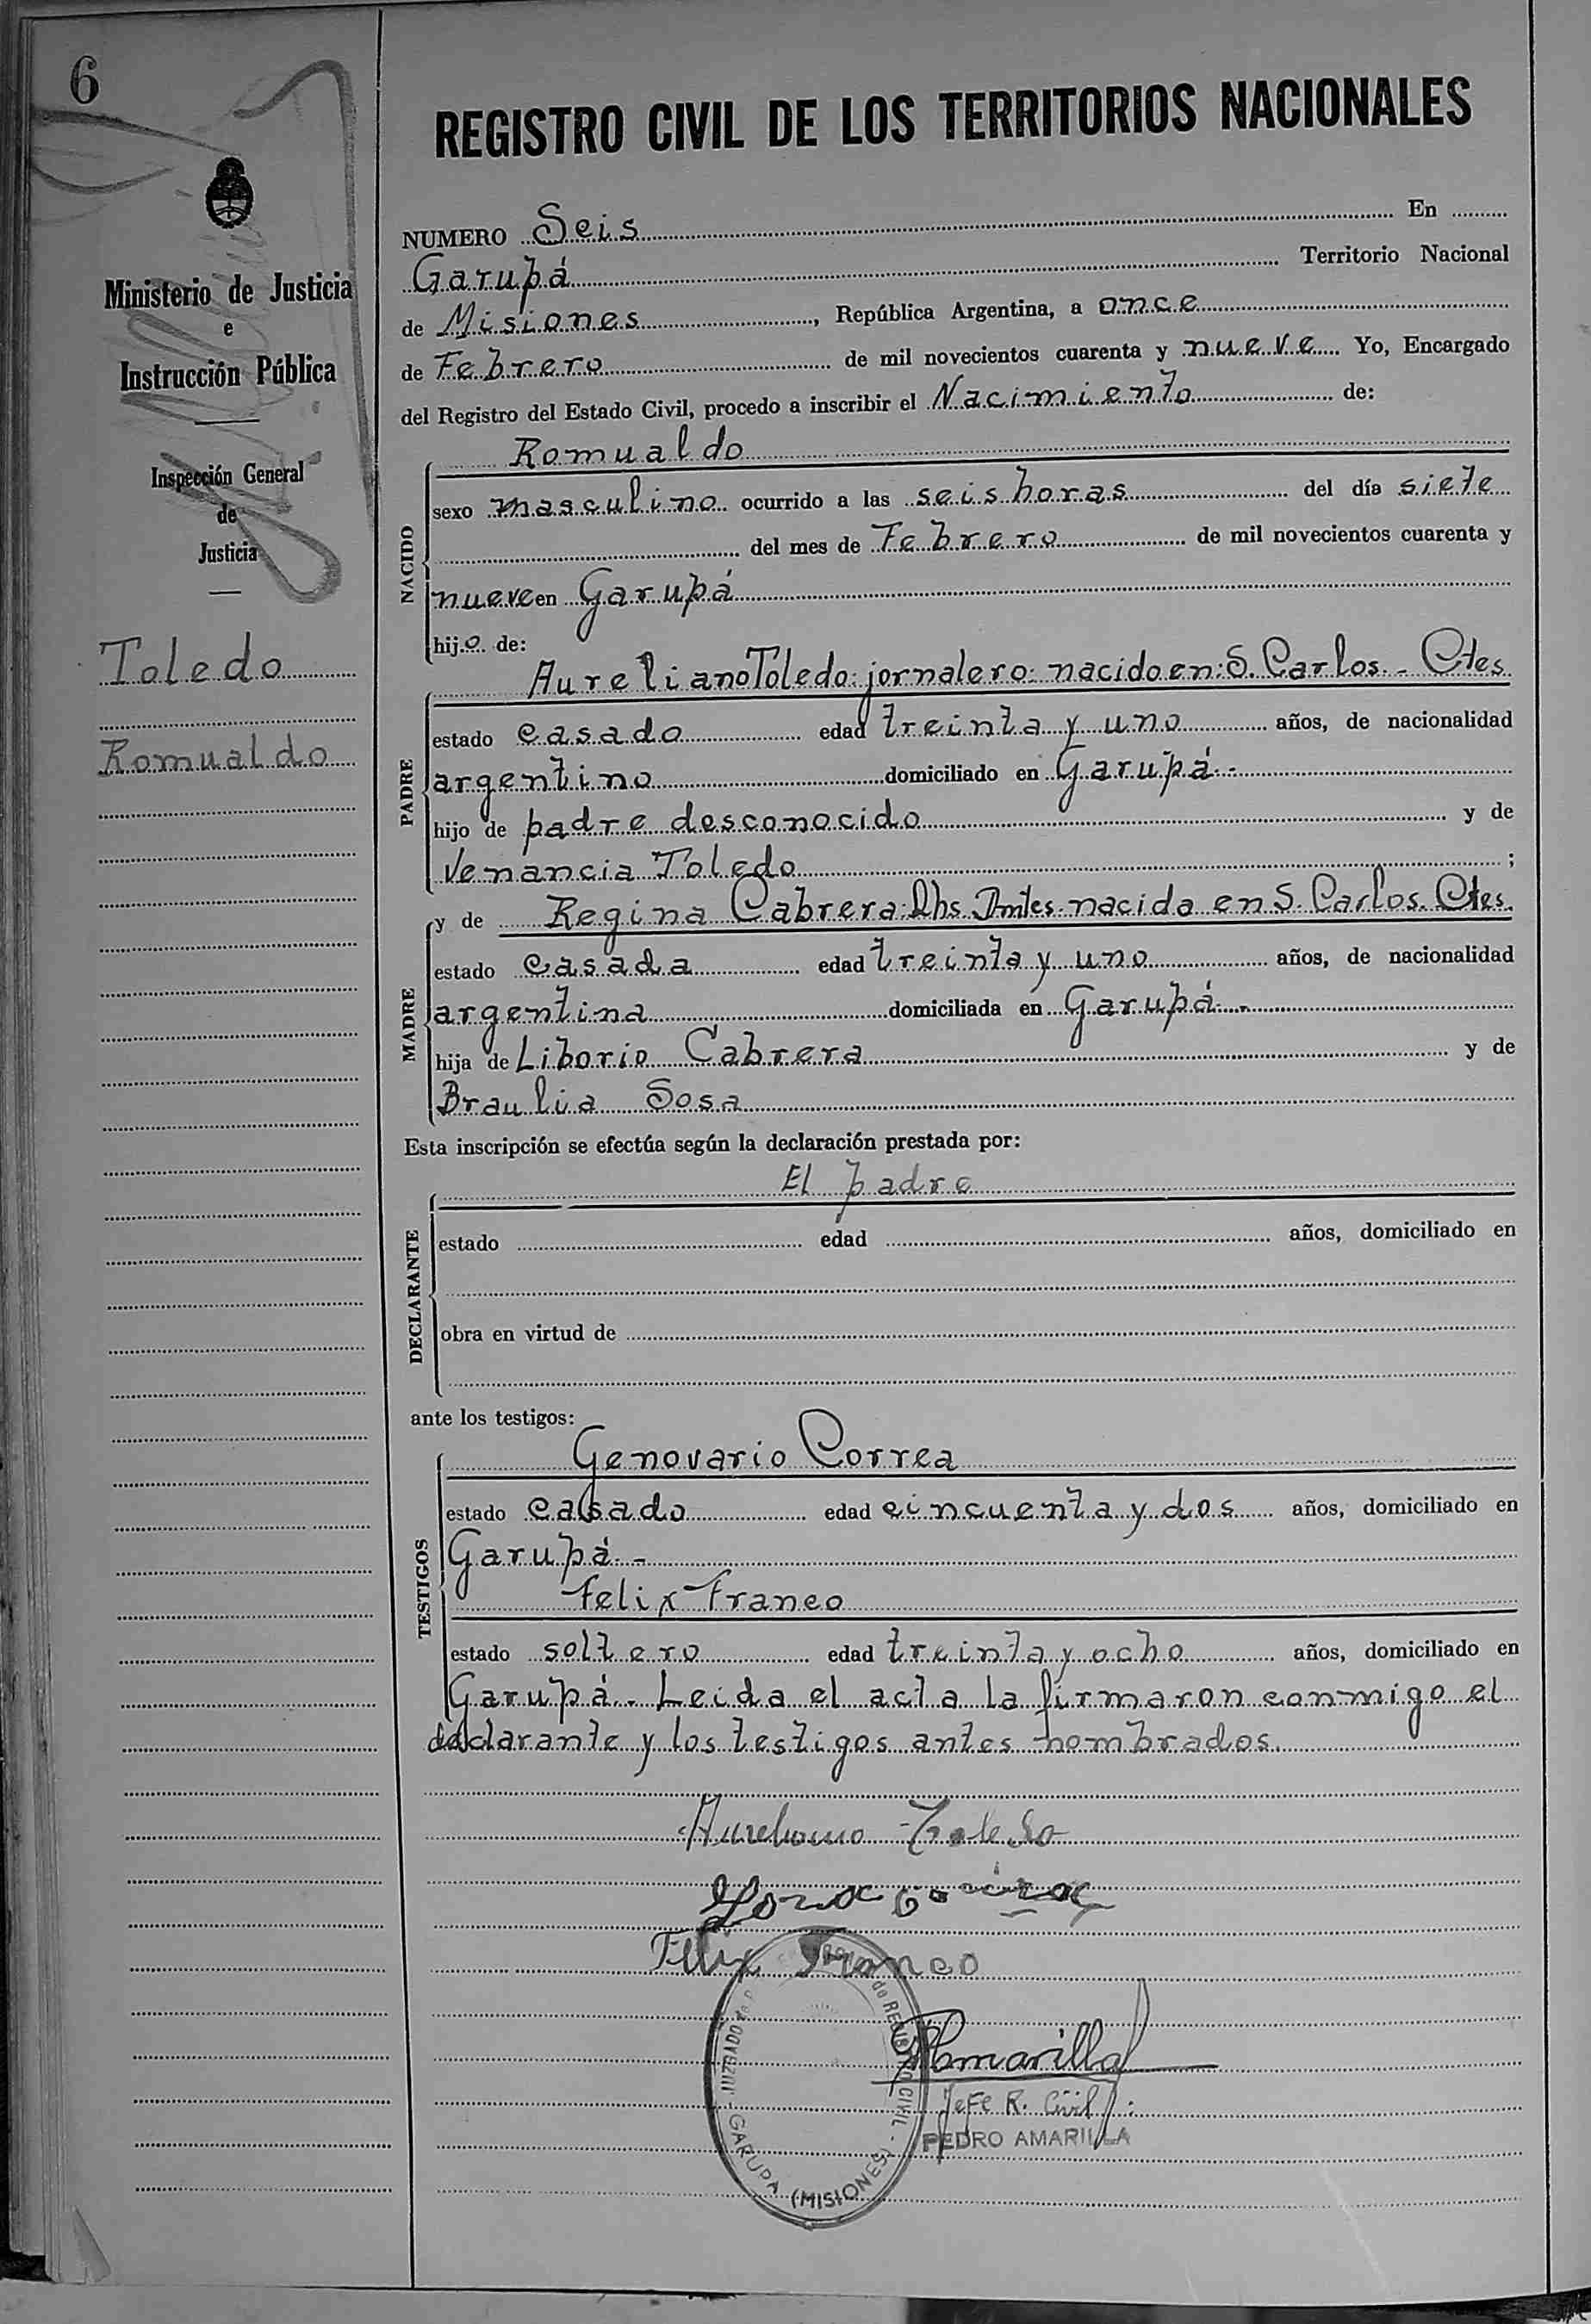 6
Ministerio de Justicia
e
Instrucción Pública
Inspección General
de
Justicia
Toledo
Romualdo
REGISTRO CIVIL DE LOS TERRITORIOS NACIONALES
NUMERO Seis En
Garupá Territorio Nacional
de Misiones, República Argentina, a once
de Febrero de mil novecientos cuarenta y nueve Yo, Encargado
del Registro del Estado Civil, procedo a inscribir el Nacimiento de:
NACIDO
Romualdo
sexo masculino ocurrido a las seis horas del día siete
del mes de Febrero de mil novecientos cuarenta y
nueve en Garupá
hijo de:
PADRE
Aureliano Toledo: jornalero: nacido en: S. Carlos - Ctes.
estado casado edad treinta y uno años, de nacionalidad
argentino domiciliado en Garupá.-
hijo de padre desconocido y de
Venancia Toledo;
MADRE
y de Regina Cabrera: nacida en S. Carlos. Ctes.
estado casada edad treinta y uno años, de nacionalidad
argentina domiciliada en Garupá.-
hija de Liborio Cabrera y de
Braulia Sosa
Esta inscripción se efectúa según la declaración prestada por:
DECLARANTE
El padre
estado edad años, domiciliado en
obra en virtud de
ante los testigos:
TESTIGOS
Genovario Correa
estado casado edad cincuenta y dos años, domiciliado en
Garupá.-
Felix Franco
estado soltero edad treinta y ocho años, domiciliado en
Garupá.- Leida el acta la firmaron conmigo el
declarante y los testigos antes nombrados.
Aureliano Toledo
Felix Franco
JUZGADO de REGISTRO CIVIL - GARUPA (MISIONES)
PAmarilla
Jefe R. Civil
PEDRO AMARILLA